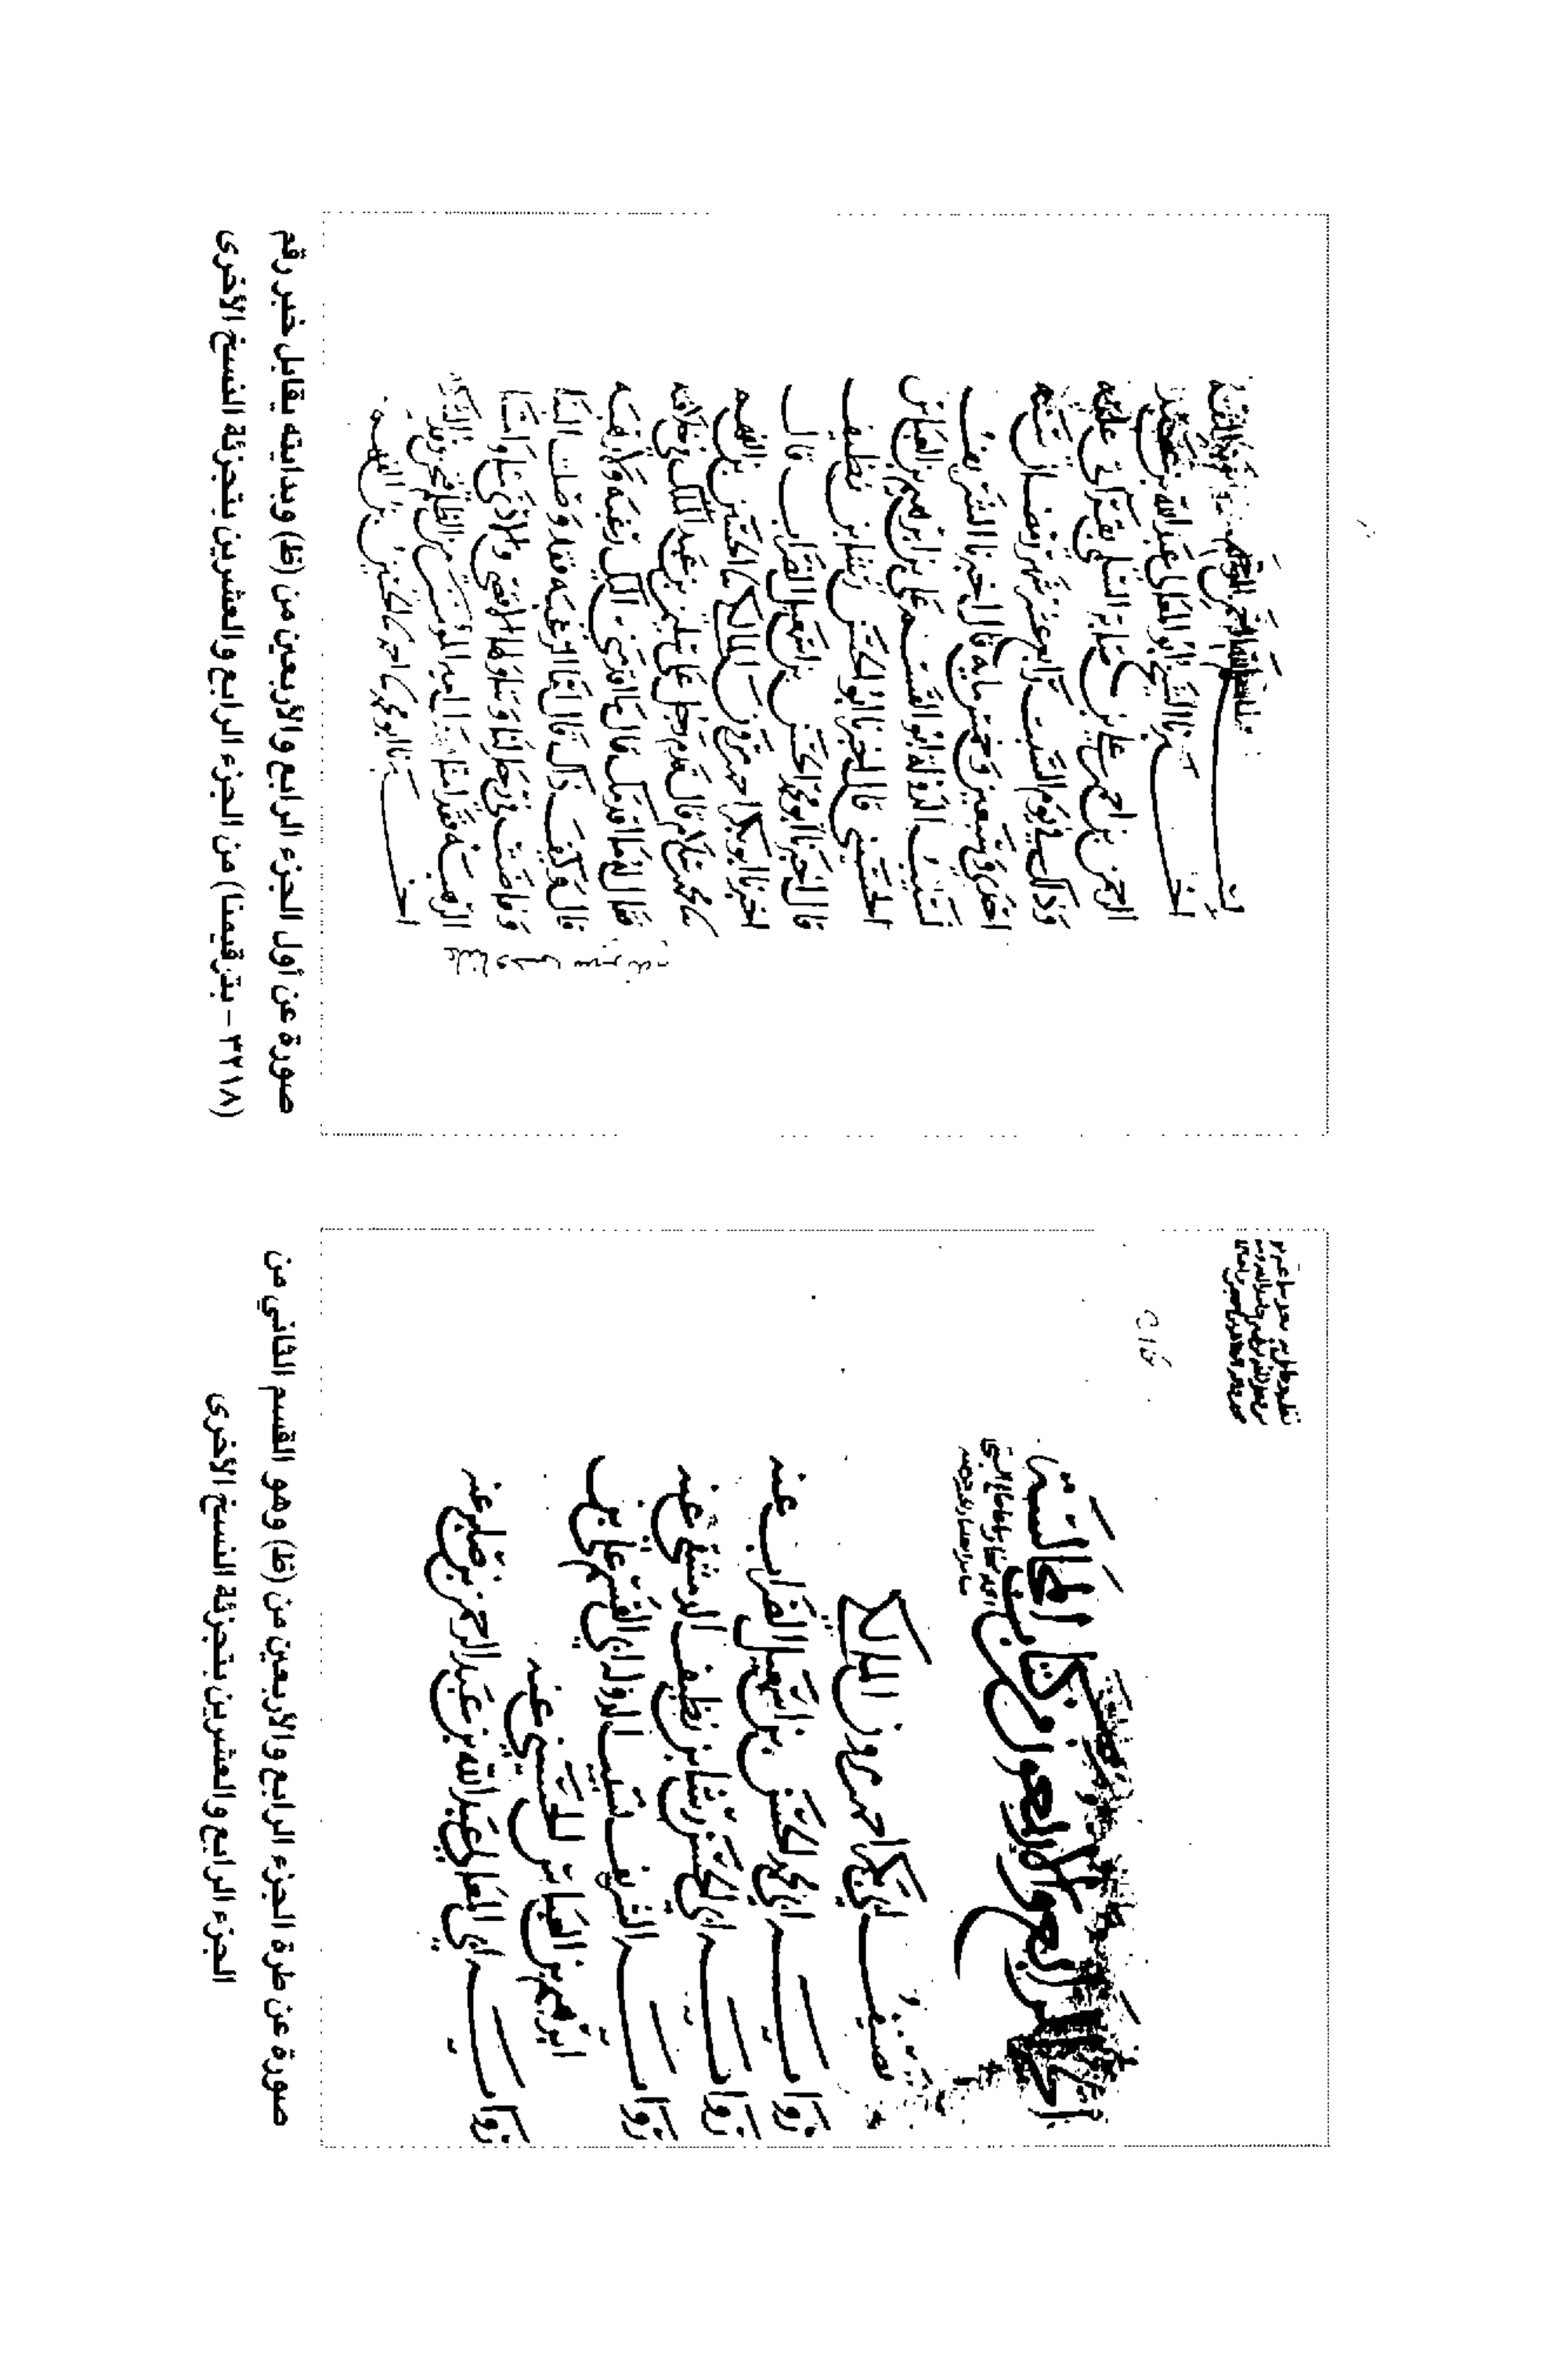 الجزء الرابع والأربعون من كتاب المجالسة
تصنيف أبي بكر أحمد بن مروان المالكي
رواية أبي محمد الحسن بن إسمعيل الضراب عنه
رواية أبي الحسن رشا بن نظيف الدمشقي عنه
رواية الشريف نسيب الدولة أبي القسم علي بن
إبرهيم بن العباس الحسيني عنه
رواية أبي المعالي عبد الله بن عبد الرحمن بن
صورة عن طرة الجزء الرابع والأربعين من (ظ) وهو القسم الثاني من
الجزء الرابع والعشرين بتجزئة النسخ الأخرى
بسم الله الرحمن الرحيم
أخبرنا الشيخ أبو المعالي عبد الله بن عبد
الرحمن بن أحمد بن علي بن صابر السلمي بقراءتي عليه
وذلك في يوم السبت رابع عشر شهر رمضان سنة
إحدى وسبعين وخمس ماية قال أخبرنا الشريف
نسيب الدولة أبو القسم علي بن إبرهيم بن العباس
الحسيني قال أخبرنا أبو الحسن رشا بن نظيف
قال أخبرنا أبو محمد الحسن بن إسمعيل الضراب قال
أخبرنا أبو بكر أحمد بن مروان المالكي نا الحسين بن الفهم
نا محمد بن سلام قال قدم رجل على سليمن بن عبد الملك في خلافته
فقال له ما أقدمك قال ما أقدمني إليك رغبة ولا رهبة
قال وكيف ذاك قال أما الرغبة فقد وصلت إلينا
وفاضت في رحالنا وتناولها الأقصى والأدنى منا وأما
الرهبة فقد أمنا
أخبرنا أبو بكر أحمد نا الحسين بن الفهم
صورة عن أول الجزء الرابع والأربعين من (ظ) وبدايته يقابل خبر رقم
(٣٢١٨ - بترقيمنا) من الجزء الرابع والعشرين بتجزئة النسخ الأخرى